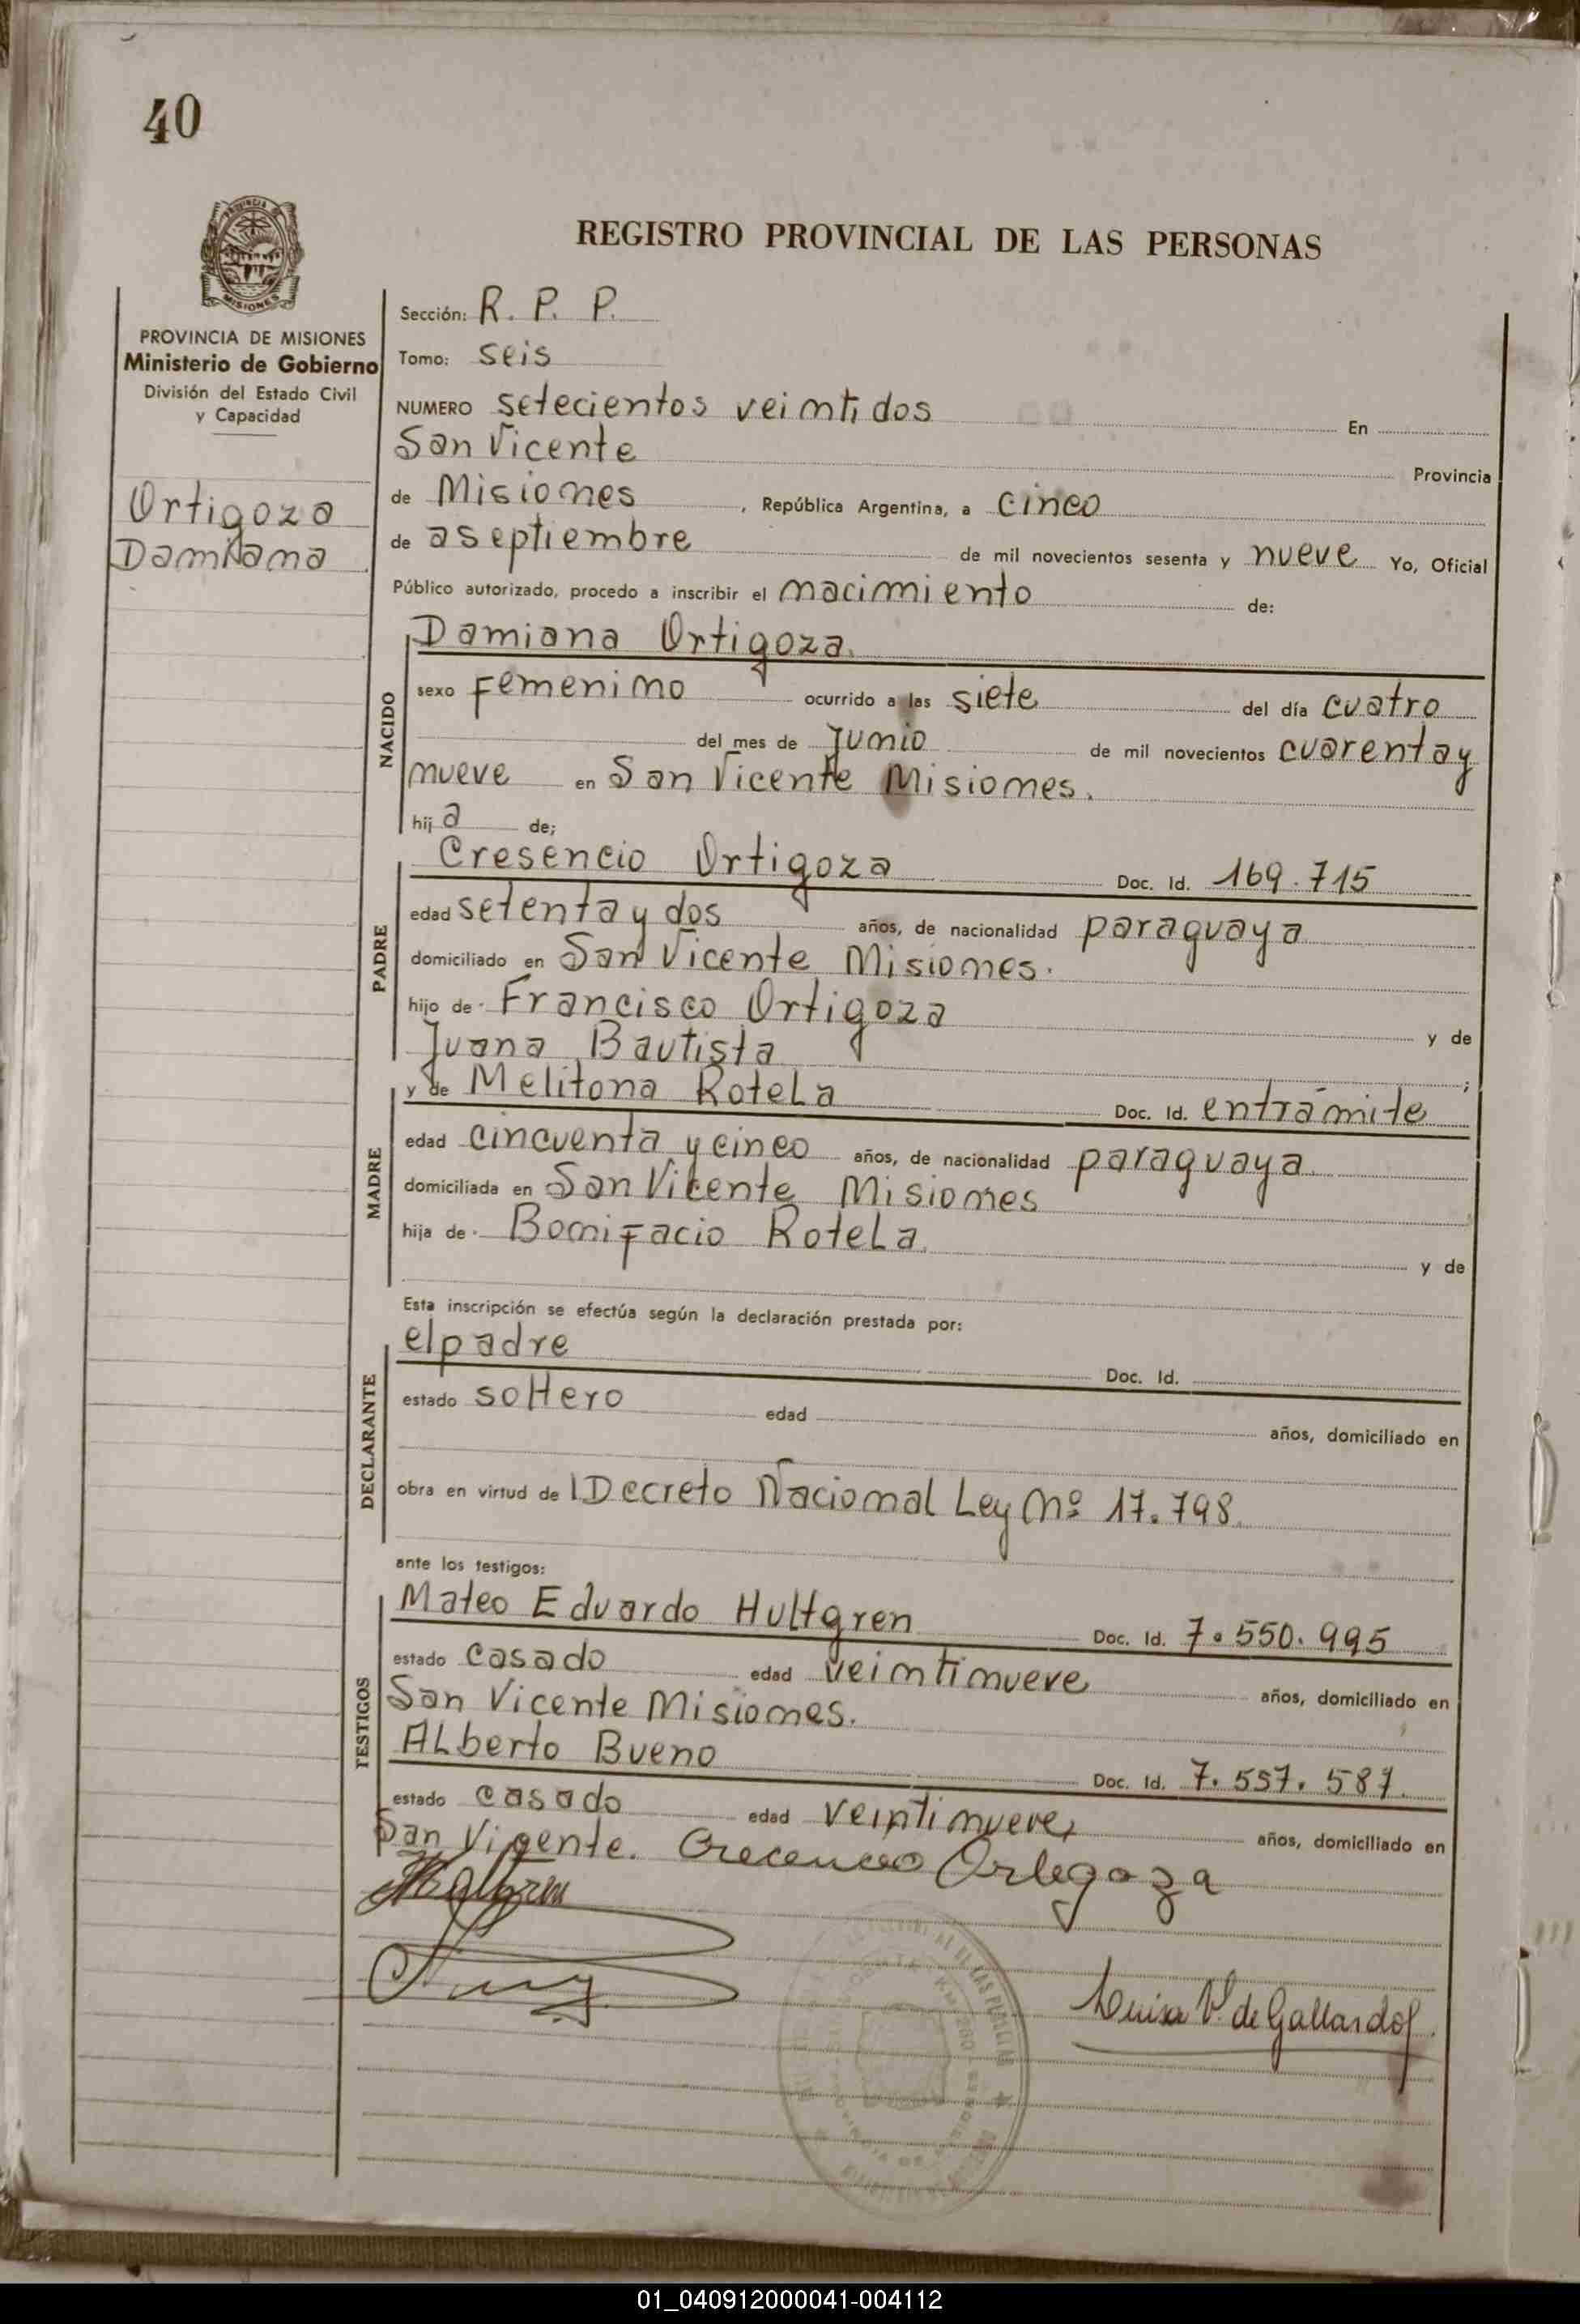 40
PROVINCIA DE MISIONES
Ministerio de Gobierno
División del Estado Civil
y Capacidad
Ortigoza
Damiana
REGISTRO PROVINCIAL DE LAS PERSONAS
Sección: R. P. P.
Tomo: seis
NUMERO setecientos veintidos En
San Vicente Provincia
de Misiones, República Argentina, a cinco
de aseptiembre de mil novecientos sesenta y nueve Yo, Oficial
Público autorizado, procedo a inscribir el nacimiento de:
Damiana Ortigoza.
NACIDO
sexo Femenino ocurrido a las siete del día cuatro
del mes de Junio de mil novecientos cuarenta y
nueve en San Vicente Misiones.
hija de;
Cresencio Ortigoza Doc. Id. 169.715
PADRE
edad setenta y dos años, de nacionalidad paraguaya
domiciliado en San Vicente Misiones.
hijo de Francisco Ortigoza y de
Juana Bautista ;
y de Melitona Rotela Doc. Id. entrámite
MADRE
edad cincuenta y cinco años, de nacionalidad paraguaya
domiciliada en San Vicente Misiones
hija de Bonifacio Rotela. y de
Esta inscripción se efectúa según la declaración prestada por:
el padre Doc. Id.
DECLARANTE
estado soltero edad años, domiciliado en
obra en virtud de l Decreto Nacional Ley Nº 17.798.
ante los testigos:
Mateo Eduardo Hultgren Doc. Id. 7.550.995
TESTIGOS
estado casado edad veintinueve años, domiciliado en
San Vicente Misiones.
Alberto Bueno Doc. Id. 7.557.587.
estado casado edad veintinueve, años, domiciliado en
San Vicente. Crecencio Ortegoza
Luisa V. de Gallardo
01_040912000041-004112